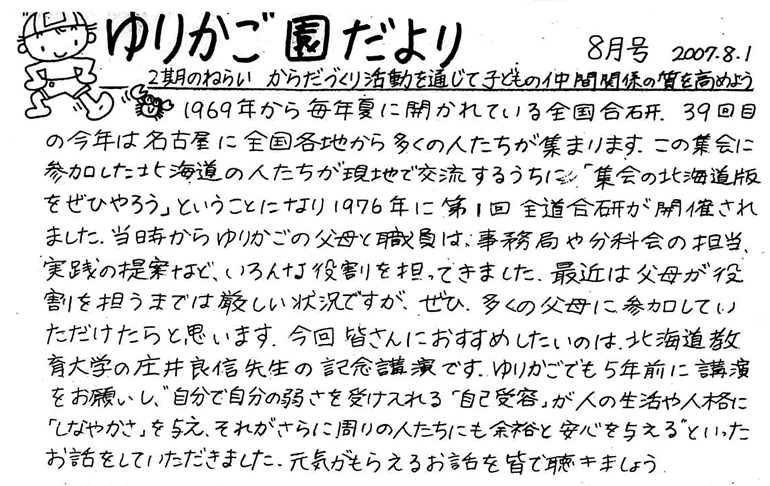 ゆりかご園だより
8月号 2007.8.1
2期のねらい からだづくり活動を通じて子どもの仲間関係の質を高めよう
1969年から毎年夏に開かれている全国合研. 39回目
の今年は名古屋に全国各地から多くの人たちが集まります.この集会に
参加した北海道の人たちが現地で交流するうちに「集会の北海道版
をぜひやろう」ということになり1976年に第1回全道合研が開催され
ました.当時からゆりかごの父母と職員は、事務局や分科会の担当、
実践の提案など、いろんな役割を担ってきました.最近は父母が役
割を担うまでは厳しい状況ですが、ぜひ、多くの父母に参加してい
ただけたらと思います.今回皆さんにおすすめしたいのは、北海道教
育大学の庄井良信先生の記念講演です.ゆりかごでも5年前に講演
をお願いし、"自分で自分の弱さを受け入れる「自己受容」が人の生活や人格に
「しなやかさ」を与え、それがさらに周りの人たちにも余裕と安心を与える"といった
お話をしていただきました.元気がもらえるお話を皆で聴きましょう.